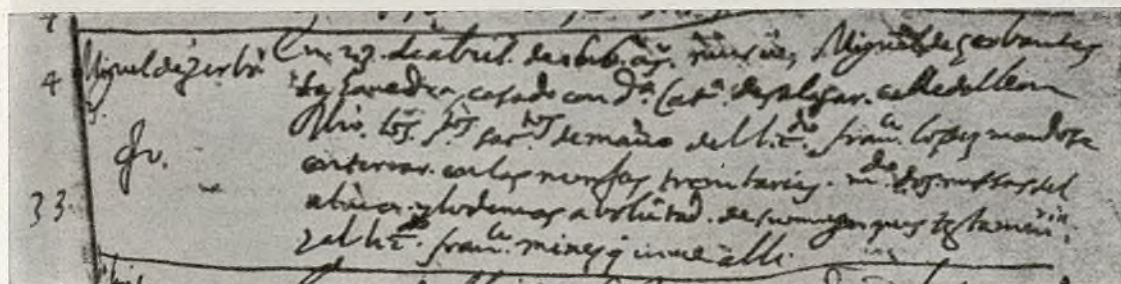 4
Miguel de zerbā
En 23 de abril de 1616 aōs. murio, Miguel de zerbantes
Sabedra, casado con dª. Catª. de salaçar. calle del leon
Rvio. los stos sacrtos de mano del licdo franco lopez mandose
enterrar en las monjas trinitarias. mdo dos missas del
33
alma y lo demas a volūtad de su muger ques testamenria
y al licdo franco minez q uiue alli